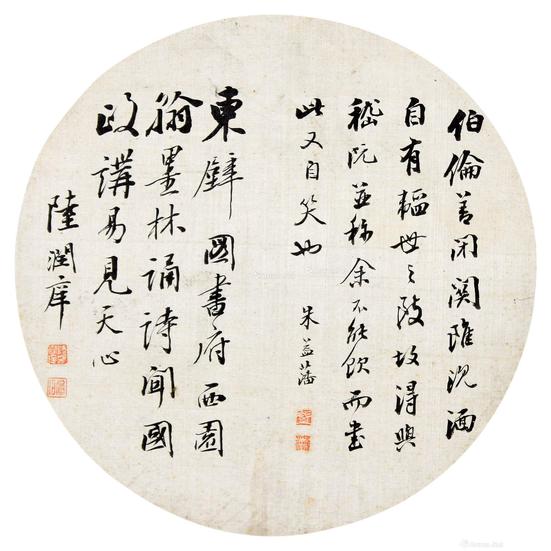 伯倫善閉関雖沉酒
自有輼世之段故得與
嵇阮並称余不能飲而書
此又自笑也
朱益藩
東壁圖書府西園
翰墨林誦詩聞國
政講易見天心
陸潤庠